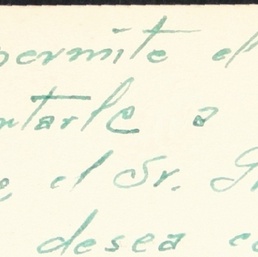 permite el
ntarle a
e, el Sr. G
desea co